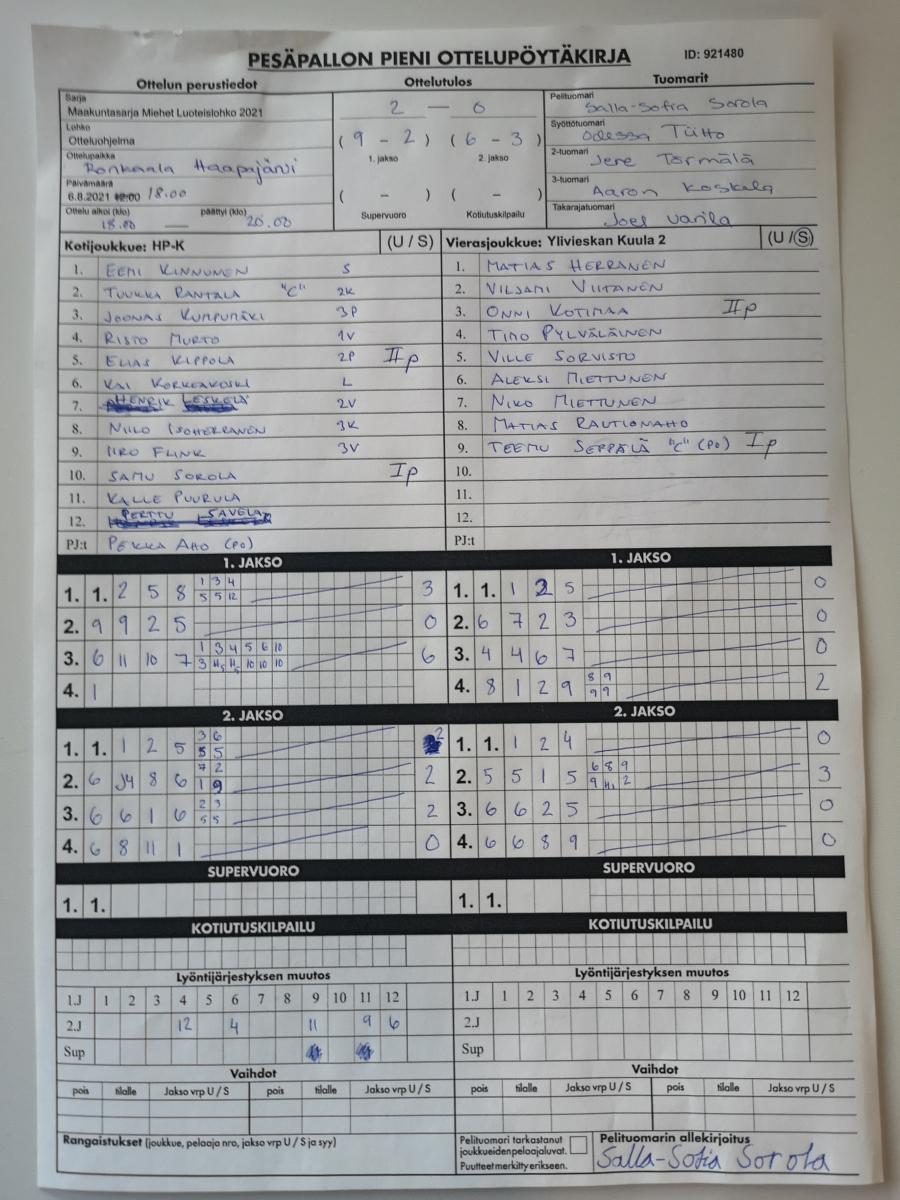 PESÄPALLON PIENI OTTELUPÖYTÄKIRJA
ID: 921480
Ottelun perustiedot
Ottelutulos
Tuomarit
Sarja
Maakuntasarja Miehet Luoteislohko 2021
Lohko
Otteluohjelma
Ottelupaikka
Ronkaala Haapajärvi
Päivämäärä
6.8.2021 18:00
Ottelu alkoi (klo) päättyi (klo)
18.00 — 20.00
2 — 0
( 9 - 2 ) ( 6 - 3 )
1. jakso 2. jakso
( - ) ( - )
Supervuoro Kotiutuskilpailu
Pelituomari
Salla-Sofia Sorola
Syöttötuomari
Odessa Tiitto
2-tuomari
Jere Törmälä
3-tuomari
Aaron Koskela
Takarajatuomari
Joel Varila
Kotijoukkue: HP-K (U / S)
1. EEMI KINNUNEN S
2. TUUKKA RANTALA "C" 2K
3. JOONAS KUMPUMÄKI 3P
4. RISTO MURTO 1V
5. ELIAS KIPPOLA 2P IIp
6. KAI KORKEAKOSKI L
7. HENRIK LESKELÄ 2V
8. NIILO ISOHERRANEN 3K
9. IIRO FLINK 3V
10. SAMU SOROLA Ip
11. KALLE PUURULA
12. PERTTU SAVELA
PJ:t PEKKA AHO (PO)
Vierasjoukkue: Ylivieskan Kuula 2 (U / S)
1. MATIAS HERRANEN
2. VILJAMI VIITANEN
3. ONNI KOTIMAA IIp
4. TIMO PYLVÄLÄINEN
5. VILLE SORVISTO
6. ALEKSI MIETTUNEN
7. NIKO MIETTUNEN
8. MATIAS RAUTIONAHO
9. TEEMU SEPPÄLÄ "C" (PO) Ip
10.
11.
12.
PJ:t
1. JAKSO
1. 1. 2 5 8 1 3 4 3
5 5 12
2. 9 9 2 5 0
3. 6 11 10 7 1 3 4 5 6 10 6
3 H5 H5 10 10 10
4. 1
1. JAKSO
1. 1. 1 2 5 0
2. 6 7 2 3 0
3. 4 4 6 7 0
4. 8 1 2 9 8 9 2
9 9
2. JAKSO
1. 1. 1 2 5 3 6 2
5 5
2. 6 J4 8 6 7 2 2
1 9
3. 6 6 1 6 2 3 2
5 5
4. 6 8 11 1 0
2. JAKSO
1. 1. 1 2 4 0
2. 5 5 1 5 6 8 9 3
9 H1 2
3. 6 6 2 5 0
4. 6 6 8 9 0
SUPERVUORO
1. 1.
SUPERVUORO
1. 1.
KOTIUTUSKILPAILU
KOTIUTUSKILPAILU
Lyöntijärjestyksen muutos
1.J 1 2 3 4 5 6 7 8 9 10 11 12
2.J 12 4 11 9 6
Sup
Lyöntijärjestyksen muutos
1.J 1 2 3 4 5 6 7 8 9 10 11 12
2.J
Sup
Vaihdot
pois tilalle Jakso vrp U / S pois tilalle Jakso vrp U / S
Vaihdot
pois tilalle Jakso vrp U / S pois tilalle Jakso vrp U / S
Rangaistukset (joukkue, pelaaja nro, jakso vrp U / S ja syy)
Pelituomari tarkastanut
joukkueiden pelaajaluvat.
Puutteet merkitty erikseen.
Pelituomarin allekirjoitus
Salla-Sofia Sorola